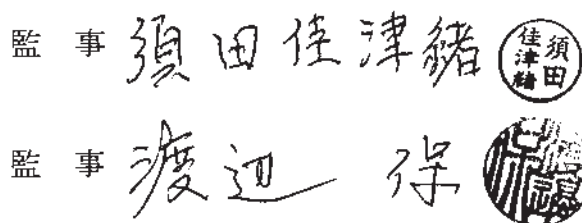 監事 須田佳津緒 須田佳津緒
監事 渡辺 保